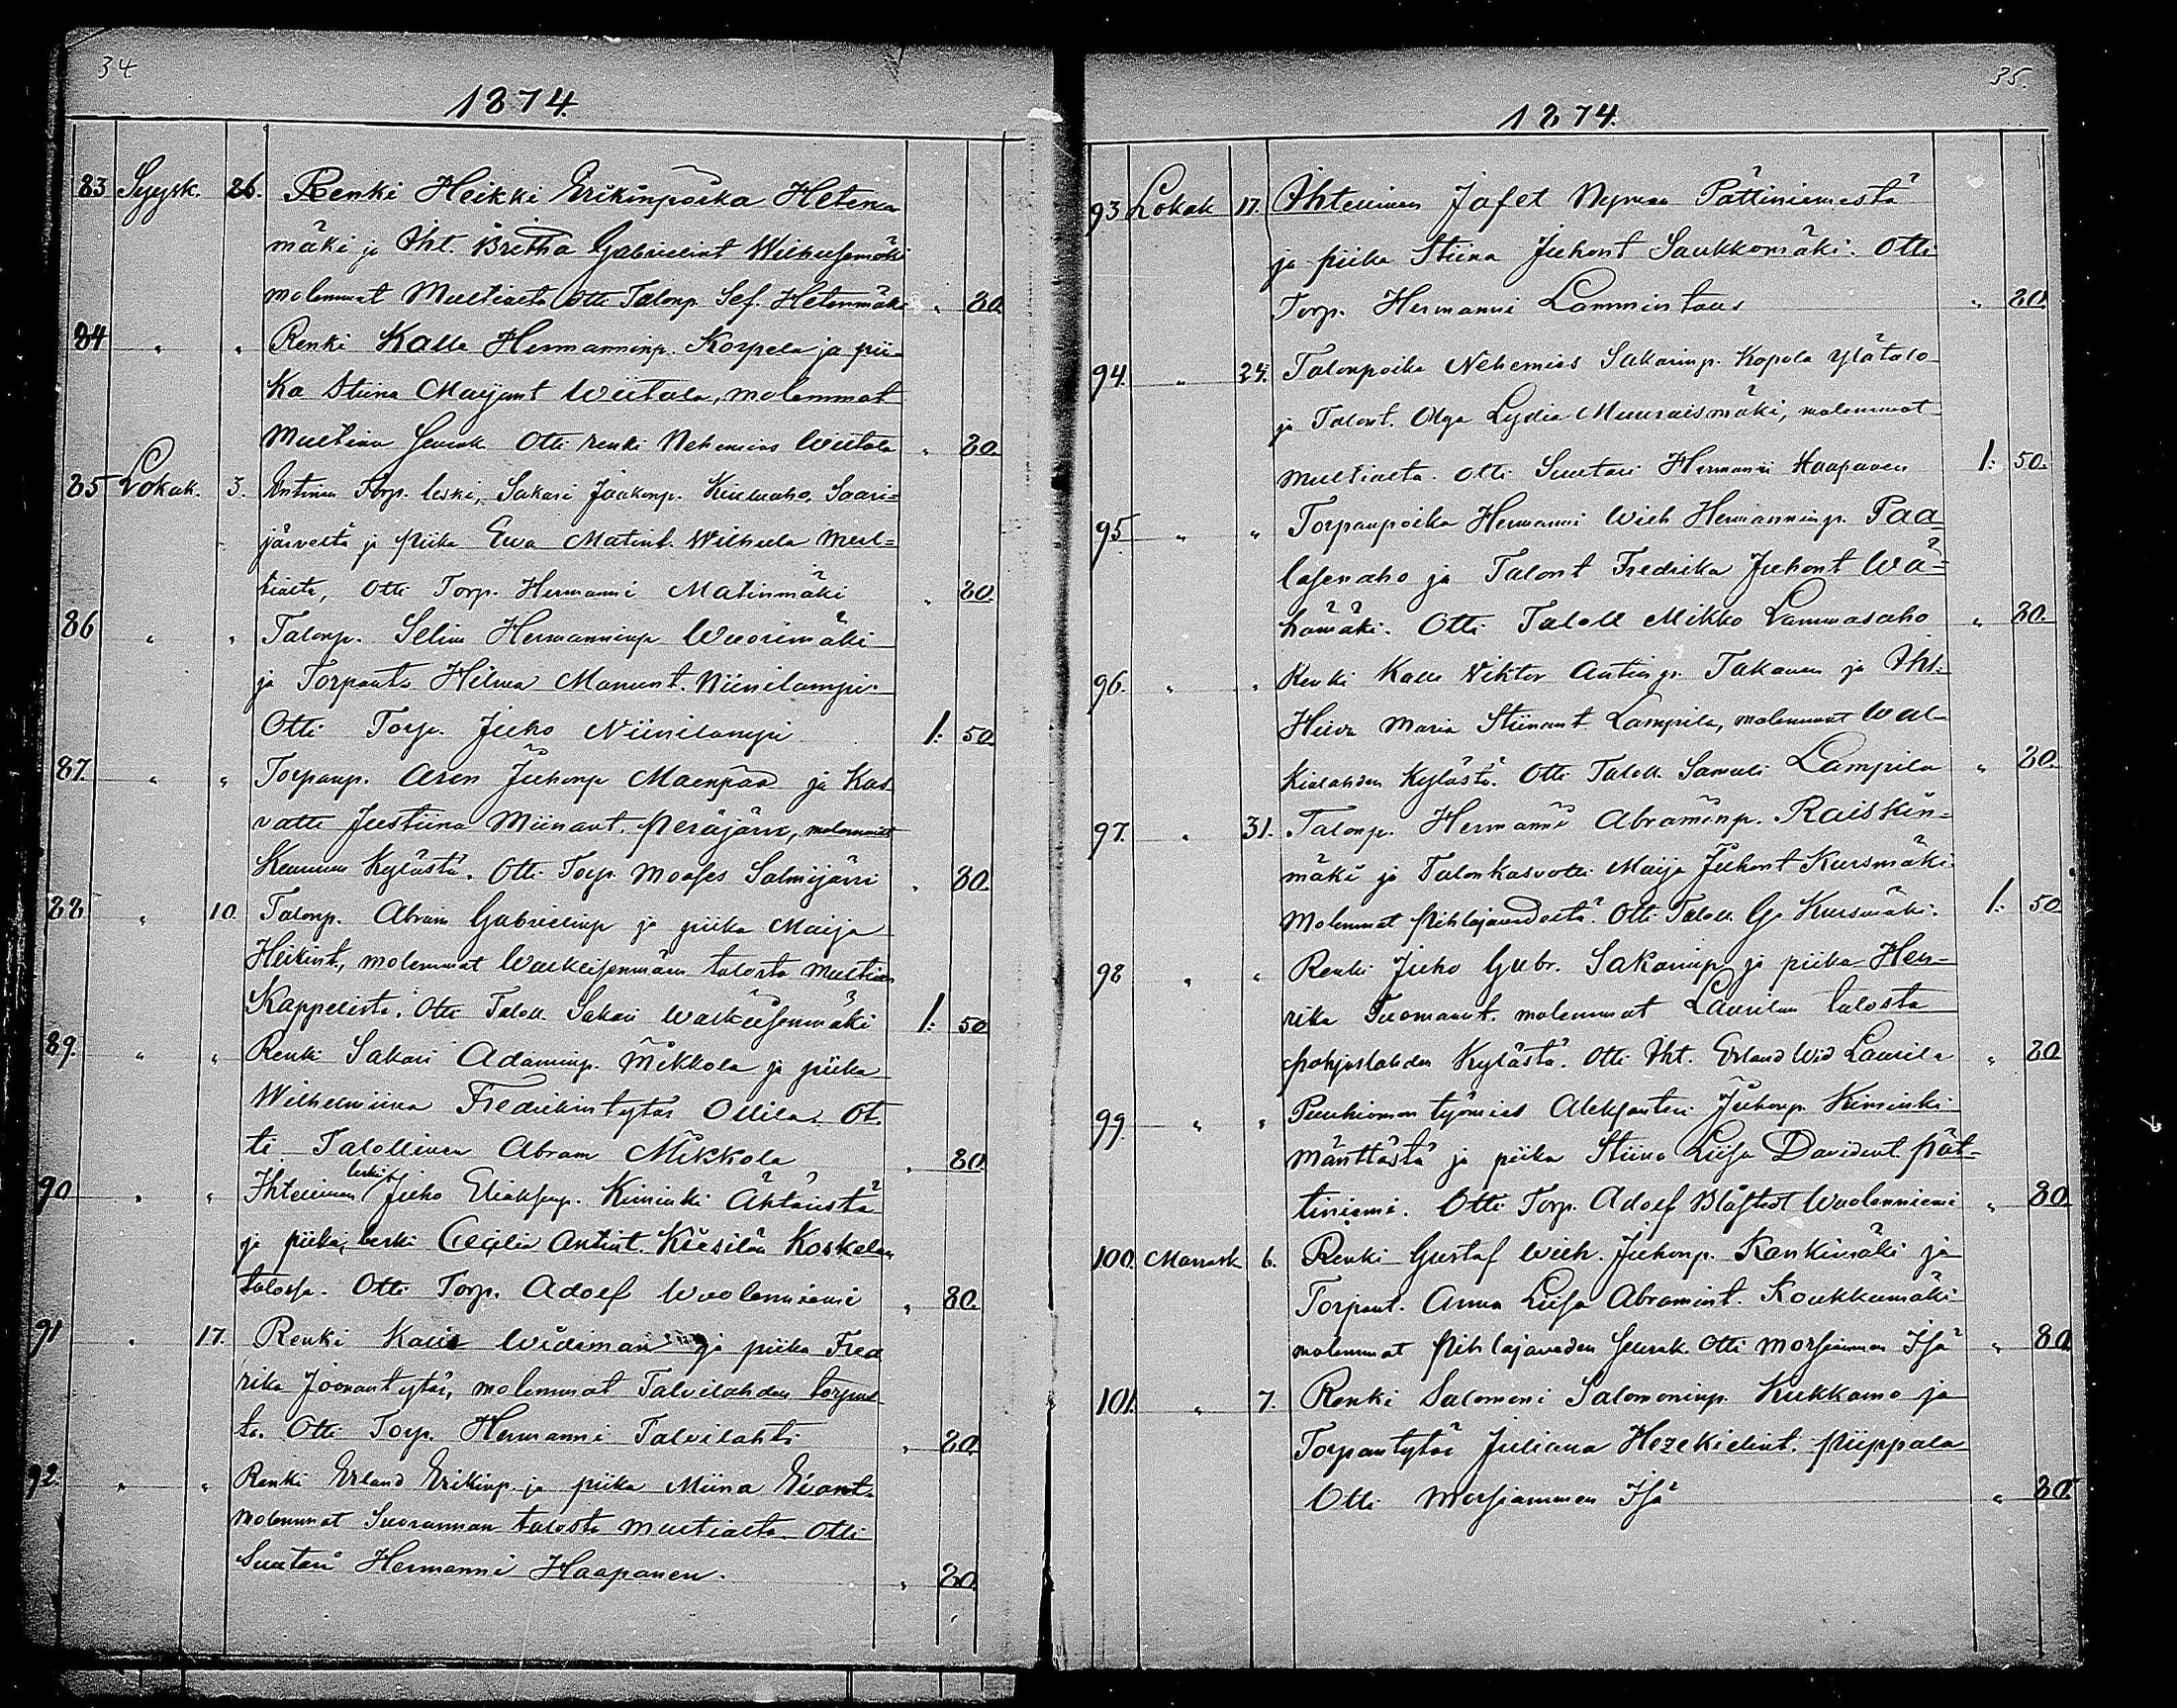 34
1874.
83 Syysk. 26. Renki Heikki Erikinpoika Hetenmäki
mäki ja Iht. Britha Gabrielint Wilhusemäki
molemmat Multialta Otti Talonp. Sef. Hetenmäki " 80.
84 " " Renki Kalle Hermanninp. Korpela ja pii-
ka Stiina Maijant Wiitala, molemmat
Multian Seurak Otti renki Nehemias Wiitala " 80.
85 Lokak. 3. Entinen Torp. leski, Sakari Jaakonp. Kiuluaho, Saari=
järveltä ja piika Ewa Matint. Wilhula Mul=
tialta, Otti Torp. Hermanni Matinmäki " 80.
86 " " Talonp. Selim Hermanninp Wuorimäki
ja Torpant. Hilma Manunt. Niinilampi.
Otti Torp. Juho Niinilampi 1: 50.
87. " " Torpanp. Aron Juhonp Maenpää ja Kas
vatti Justiina Miinant. Peräjärvi, molemmat
Keuruun Kylästä. Otti Torp. Moses Salmijärvi " 80.
88 " 10. Talonp. Abram Gabrielinp ja piika Maija
Heikint., molemmat Warkiisenmäen talosta Multian
Kappelista. Otti Taloll. Sakari Warkiisenmäki 1: 50
89. " " Renki Sakari Adaminp. Mikkola ja piika
Wilhelmiina Fredrikintytär Ollila. Ot.
ti Talollinen Abram Mikkola " 80
90 " " Ihtellinen leski Juho Eliaksenp. Kiminki Ähtäristä
ja piika, leski Cecilia Antint. Kiesilän Koskelan
talossa. Otti Torp. Adolf Wuolenniemi " 80.
91 " 17. Renki Kalle Widiman ja piika Fred
rika Joonantytär, molemmat Talvilahden torpas
ta. Otti Torp. Hermanni Talvilahti " 80.
92. " " Renki Erland Erikinp. ja piika Miina Eliant.
Molemmat Suorannan talosta Multialta. Otti
Suutari Hermanni Haapanen. " 80.
35.
1874.
93 Lokak 17. Ihtellinen Jafet Nyman Pättiniemestä
ja piika Stiina Juhont Saukkomäki. Otti
Torp. Hermanni Lammintaus " 80.
94. " 24. Talonpoika Nehemias Sakarinp. Kopola Ylätalo
ja Talont. Olga Lydia Muuraismäki, molemmat
Multialta. Otti Suutari Hermanni Haapanen 1: 50.
95 " " Torpanpoika Hermanni Wilh Hermanninp. Paa=
lasenaho ja Talont Fredrika Juhont Wä=
hämäki. Otti Taloll Mikko Lammasaho " 80.
96. " " Renki Kalle Viktor Antinp. Takanen ja Iht.
Hilda Maria Stiinant. Lampila, molemmat Wal-
kialahden Kylästä. Otti Taloll. Samuli Lampila " 80.
97. " 31. Talonp. Hermanni Abraminp. Raiskin=
mäki ja Talonkasvatti Maija Juhont Kursmäki
Molemmat Pihlajavedeltä. Otti Taloll. G. Kursmäki. 1: 50
98 " " Renki Juho Gabr. Sakarinp. ja piika Hen-
rika Tuomaant. molemmat Laurilan talosta
Pohjoslahden Kylästä. Otti Iht. Erland Wid Laurila " 80
99. " " Puuhiomon työmies Aleksanteri Juhonp. Kiminki
Mänttästä ja piika Stiina Liisa Davidint. Pät-
tiniemi. Otti Torp. Adolf Blåfield Wuolenniemi " 80
100. Marrask 6. Renki Gustaf Wilh. Juhonp. Kankimäki ja
Torpant. Anna Liisa Abramint. Koukkumäki
molemmat Pihlajaveden Seurak. Otti Morsiammen Isä " 80
101. " 7. Renki Salomoni Salomoninp. Kukkamo ja
Torpantytär Juliana Hezekielint. Piippala
Otti Morsiammen Isä " 80.